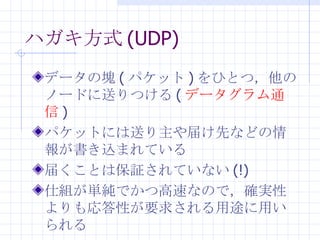 ハガキ方式(UDP)
データの塊(パケット)をひとつ，他の
ノードに送りつける(データグラム通
信)
パケットには送り主や届け先などの情
報が書き込まれている
届くことは保証されていない(!)
仕組が単純でかつ高速なので，確実性
よりも応答性が要求される用途に用い
られる